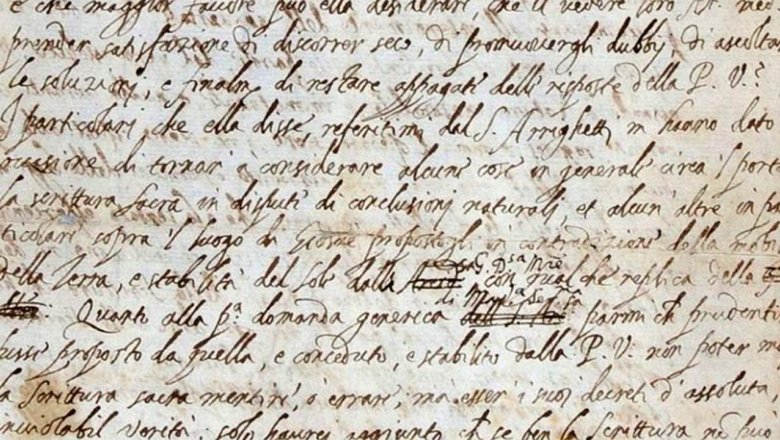 e che maggior favore può ella desiderare, che il vedere loro
prender satisfazione di discorrer seco, di promuovergli dubby, di ascoltar
le soluzioni, e finalm. di restare appagati delle risposte della P. V.?
I particolari, che ella disse, referitimi dal S. Arrighetti m hanno dato
ccasione di tornar' a considerare alcune cose in generale circa 'l port
la scrittura sacra in dispute di conclusioni naturali, et alcun' altre in pa
ticolari sopra 'l luogo di Giosue propostogli in contradizione della mobi
della Terra, e stabilità del Sole dalla con qualche replica della
Quanto alla p.a domanda generica parmi ch prudenti
fusse proposto da quella, e conceduto, e stabilito dalla P. V. non poter m
la Scrittura sacra mentire, o errare, ma esser' i suoi decreti d' assoluta,
inviolabil verità; solo haurei aggiunto ch se ben la Scrittura